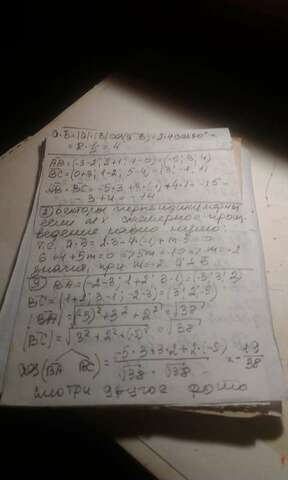 a·b=|a|·|b|cos(a b)=2·4cos60°=
=8·½=4
AB=(-3-2; 2+1; 4-0)=(-5; 3; 4)
BC=(0+3; 1-2; 5-4)=(3; -1; 1)
AB·BC=-5·3+3·(-1)+4·1=-15-
-3+4=-14
2) Векторы перпендикулярны
если их скалярное произ
ведение равно нулю:
т.е. a·b=2·3-4·(-1)+m·5=0
6+4+5m=0 =>5m=-10=>m=-2
значит, при m=-2 a⊥b
3) BA=(-2-3; 1+2; 3-1)=(-5; 3; 2)
BC=(1+2; 3-1; -2-3)=(3; 2; -5)
|BA|=√(-5)²+3²+2²=√38
|BC|=√3²+2²+(-5)²=√38
cos(BA BC)=-5·3+3·2+2·(-5)/√38·√38=-19/38
смотри другое фото